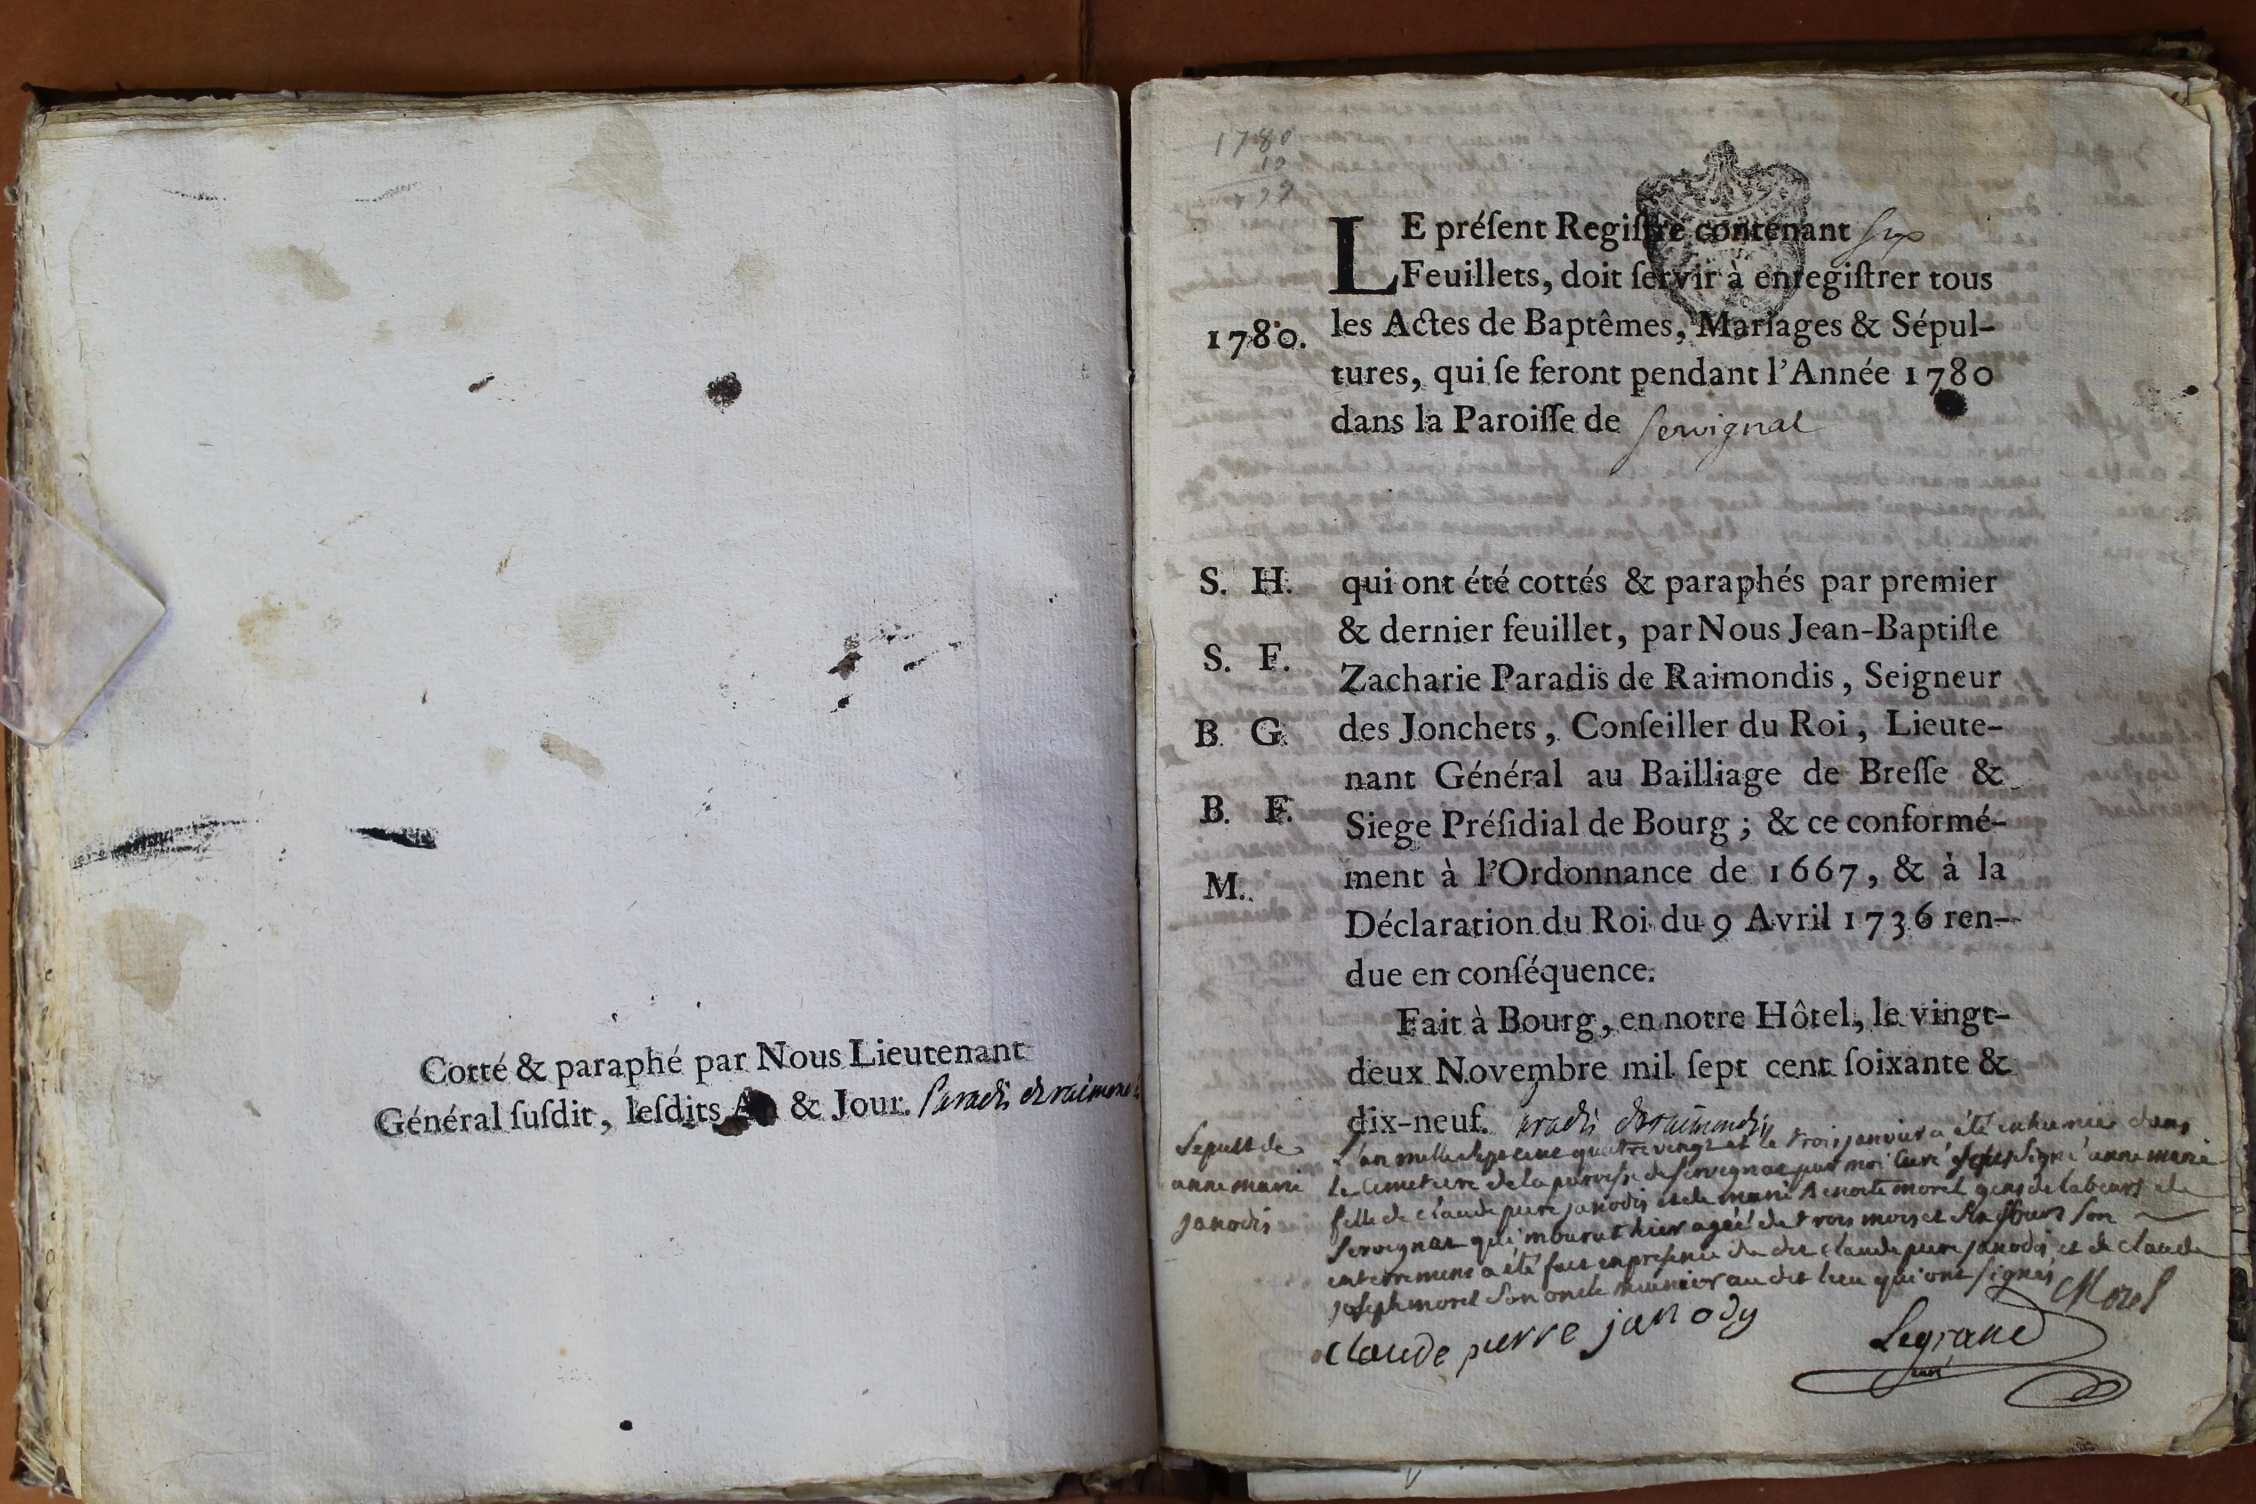 Cotté & paraphé par Nous Lieutenant
Général ſuſdit, leſdits An & Jour. Paradis de raimondis
1780
10
LE préſent Regiſtre contenant ſix
Feuillets, doit ſervir à enregiſtrer tous
1780. les Actes de Baptêmes, Mariages & Sépul-
tures, qui ſe feront pendant l'Année 1780
dans la Paroiſſe de ſervignat
S. H. qui ont été cottés & paraphés par premier
& dernier feuillet, par Nous Jean-Baptiſte
S. F. Zacharie Paradis de Raimondis, Seigneur
B G. des Jonchets, Conſeiller du Roi, Lieute-
nant Général au Bailliage de Breſſe &
B. F. Siege Préſidial de Bourg ; & ce conformé-
M. ment à l'Ordonnance de 1667, & à la
Déclaration du Roi du 9 Avril 1736 ren-
due en conſéquence.
Fait à Bourg, en notre Hôtel, le vingt-
deux Novembre mil ſept cent ſoixante &
dix-neuf. Paradis de raimondis
Sepult de
anne marie
janodis
L'an mille sept cent quatre vingt et le trois janvier a été inhumée dans
le cimetiere de la paroisse de servignat par moi curé soussigné anne marie
fille de claude pierre janodis et de marie morel gens de labeurs de
servignat qui mourut hier agée de trois mois et jours son
enterrement a été fait en presence du dit claude pierre janodis et de claude
joseph morel son oncle munier au dit lieu qui ont signés
Morel
claude pierre janody
Legrand
curé